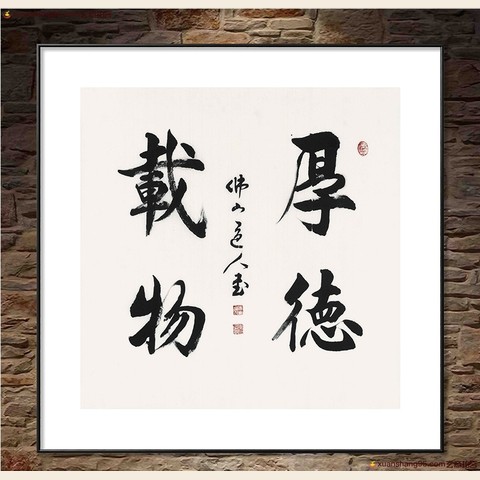 厚德
載物
佛山道人書